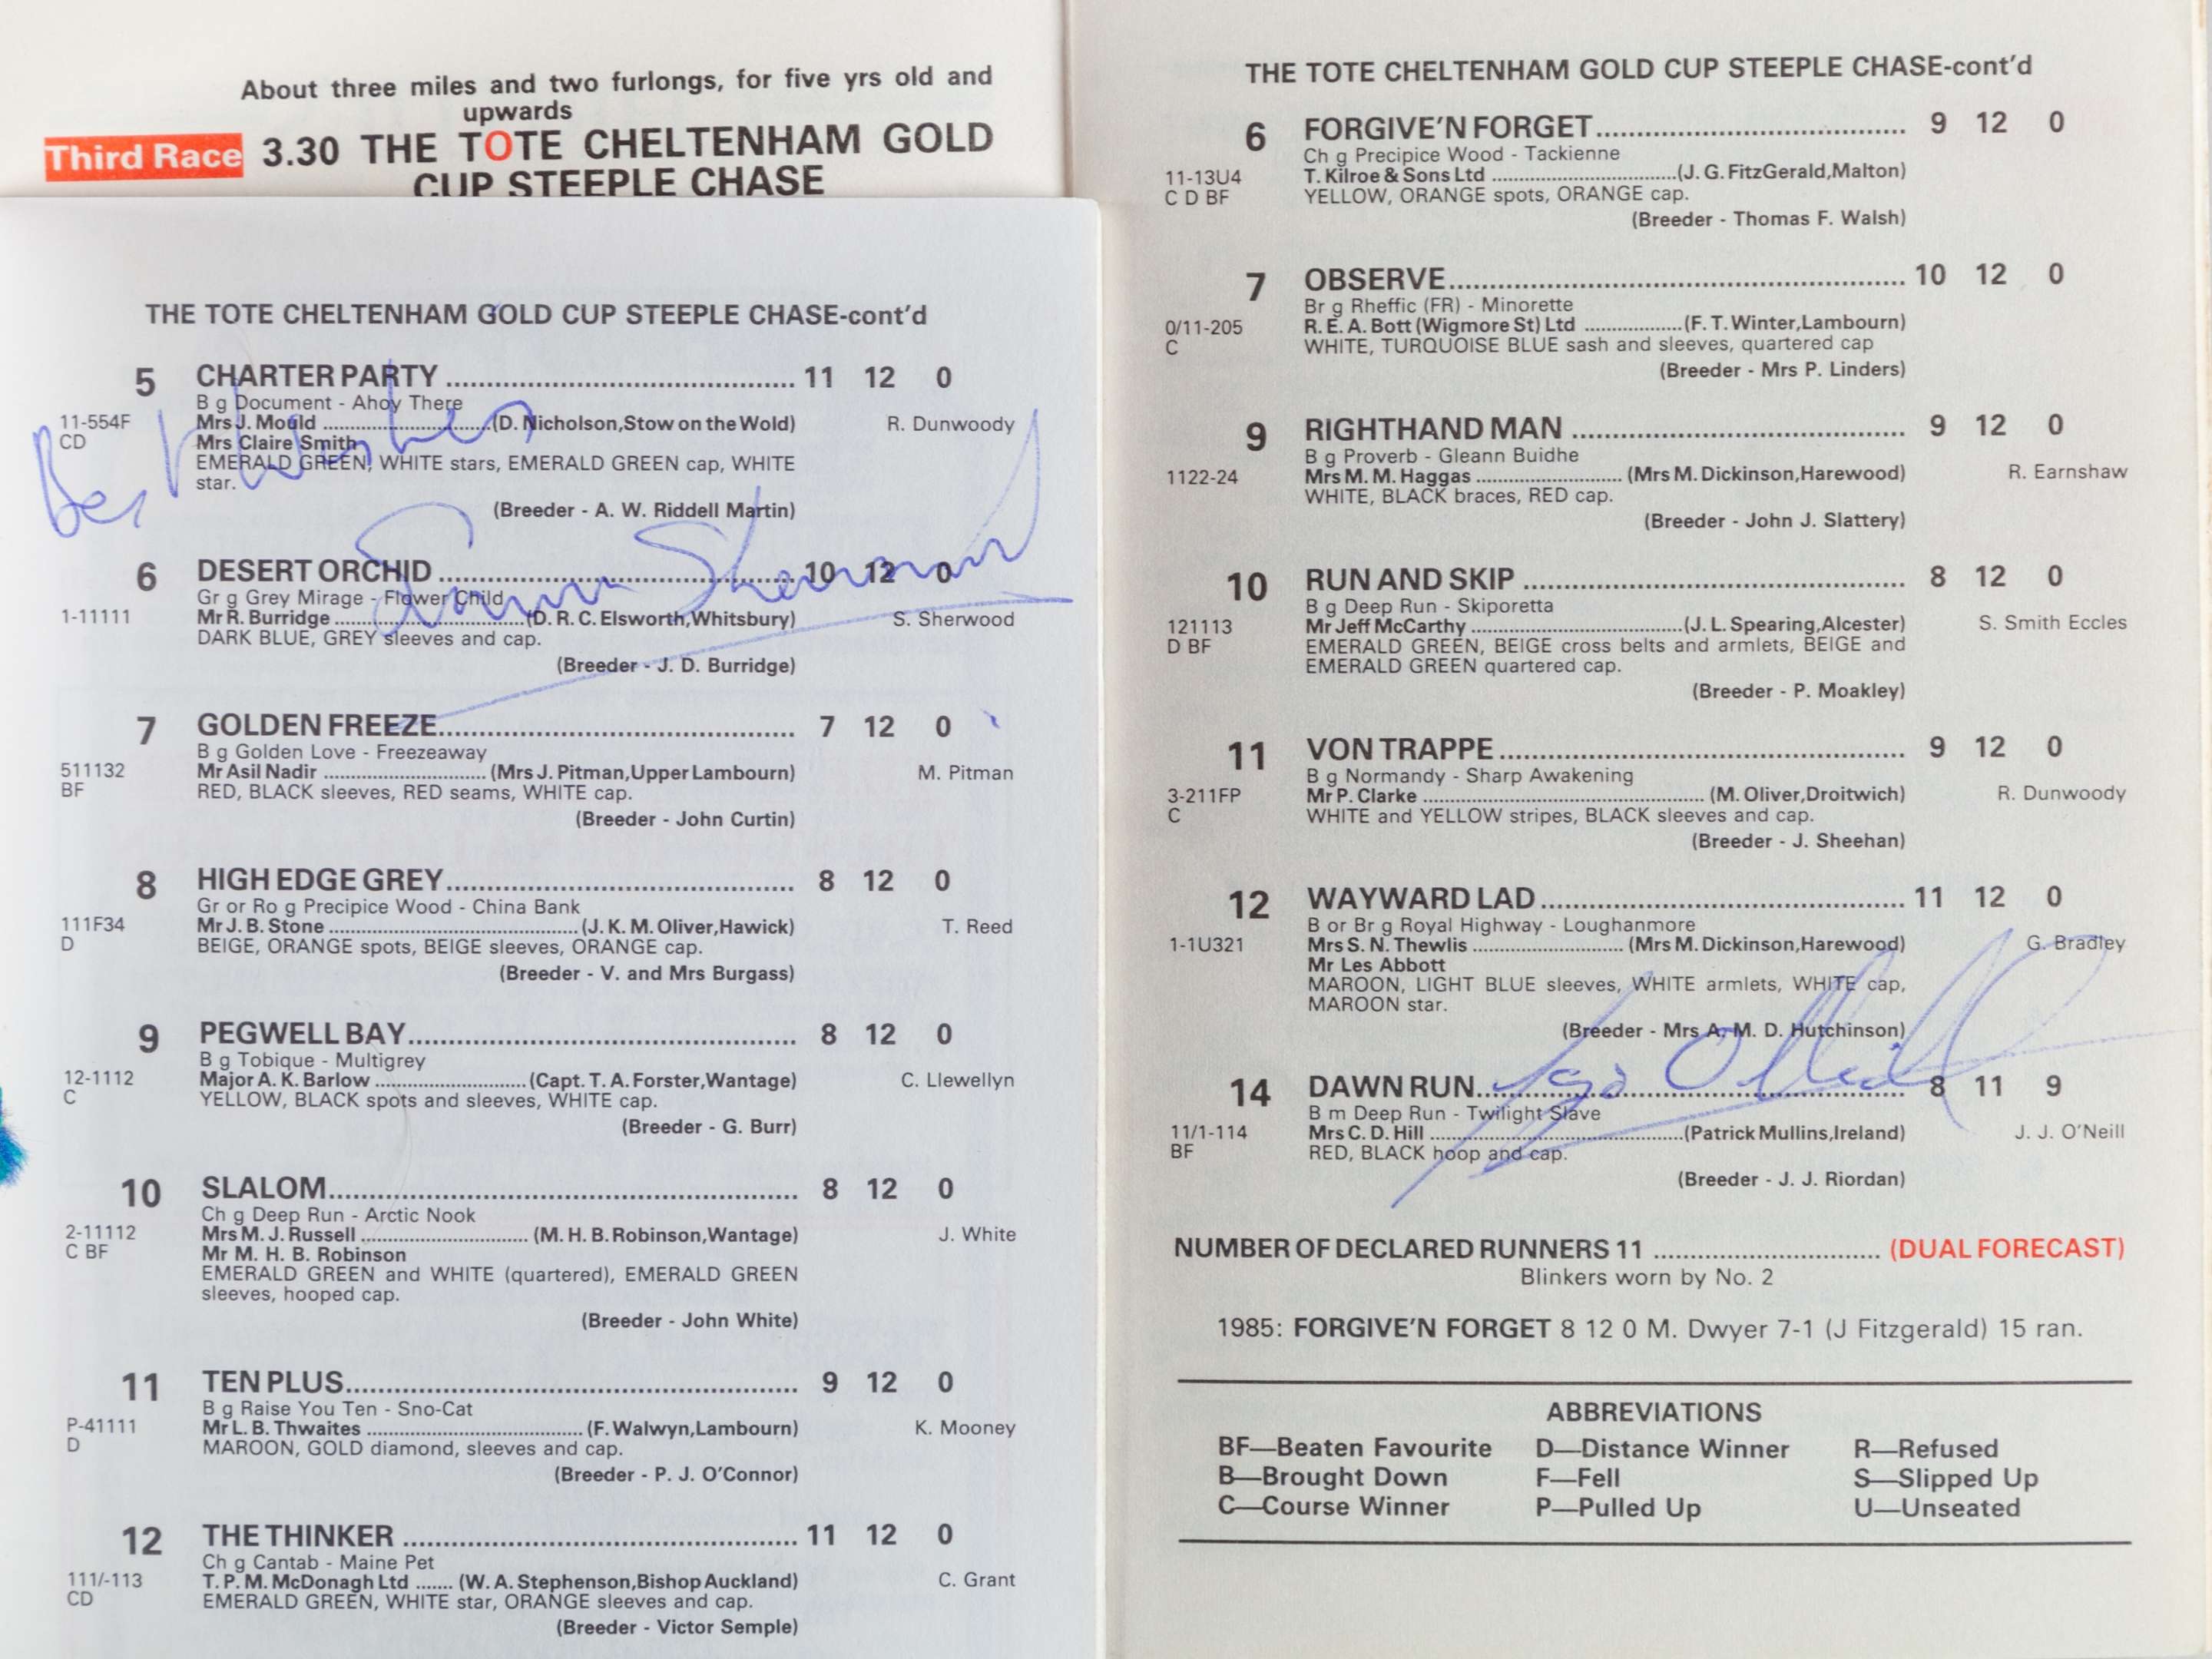 About three miles and two furlongs, for five yrs old and
upwards
Third Race 3.30 THE TOTE CHELTENHAM GOLD
CUP STEEPLE CHASE
THE TOTE CHELTENHAM GOLD CUP STEEPLE CHASE-cont'd
5 CHARTER PARTY 11 12 0
B g Document - Ahoy There
11-554F Mrs J. Mould (D. Nicholson, Stow on the Wold) R. Dunwoody
CD Mrs Claire Smith
EMERALD GREEN, WHITE stars, EMERALD GREEN cap, WHITE
star.
Best Wishes
(Breeder - A. W. Riddell Martin)
Simon Sherwood
6 DESERT ORCHID 10 12 0
Gr g Grey Mirage - Flower Child
1-11111 Mr R. Burridge (D. R. C. Elsworth, Whitsbury) S. Sherwood
DARK BLUE, GREY sleeves and cap.
(Breeder - J. D. Burridge)
7 GOLDEN FREEZE 7 12 0
B g Golden Love - Freezeaway
511132 Mr Asil Nadir (Mrs J. Pitman, Upper Lambourn) M. Pitman
BF RED, BLACK sleeves, RED seams, WHITE cap.
(Breeder - John Curtin)
8 HIGH EDGE GREY 8 12 0
Gr or Ro g Precipice Wood - China Bank
111F34 Mr J. B. Stone (J. K. M. Oliver, Hawick) T. Reed
D BEIGE, ORANGE spots, BEIGE sleeves, ORANGE cap.
(Breeder - V. and Mrs Burgass)
9 PEGWELL BAY 8 12 0
B g Tobique - Multigrey
12-1112 Major A. K. Barlow (Capt. T. A. Forster, Wantage) C. Llewellyn
C YELLOW, BLACK spots and sleeves, WHITE cap.
(Breeder - G. Burr)
10 SLALOM 8 12 0
Ch g Deep Run - Arctic Nook
2-11112 Mrs M. J. Russell (M. H. B. Robinson, Wantage) J. White
C BF Mr M. H. B. Robinson
EMERALD GREEN and WHITE (quartered), EMERALD GREEN
sleeves, hooped cap.
(Breeder - John White)
11 TEN PLUS 9 12 0
B g Raise You Ten - Sno-Cat
P-41111 Mr L. B. Thwaites (F. Walwyn, Lambourn) K. Mooney
D MAROON, GOLD diamond, sleeves and cap.
(Breeder - P. J. O'Connor)
12 THE THINKER 11 12 0
Ch g Cantab - Maine Pet
111/-113 T. P. M. McDonagh Ltd (W. A. Stephenson, Bishop Auckland) C. Grant
CD EMERALD GREEN, WHITE star, ORANGE sleeves and cap.
(Breeder - Victor Semple)
THE TOTE CHELTENHAM GOLD CUP STEEPLE CHASE-cont'd
6 FORGIVE'N FORGET 9 12 0
Ch g Precipice Wood - Tackienne
11-13U4 T. Kilroe & Sons Ltd (J. G. FitzGerald, Malton)
C D BF YELLOW, ORANGE spots, ORANGE cap.
(Breeder - Thomas F. Walsh)
7 OBSERVE 10 12 0
Br g Rheffic (FR) - Minorette
0/11-205 R. E. A. Bott (Wigmore St) Ltd (F. T. Winter, Lambourn)
C WHITE, TURQUOISE BLUE sash and sleeves, quartered cap
(Breeder - Mrs P. Linders)
9 RIGHTHAND MAN 9 12 0
B g Proverb - Gleann Buidhe
1122-24 Mrs M. M. Haggas (Mrs M. Dickinson, Harewood) R. Earnshaw
WHITE, BLACK braces, RED cap.
(Breeder - John J. Slattery)
10 RUN AND SKIP 8 12 0
B g Deep Run - Skiporetta
121113 Mr Jeff McCarthy (J. L. Spearing, Alcester) S. Smith Eccles
D BF EMERALD GREEN, BEIGE cross belts and armlets, BEIGE and
EMERALD GREEN quartered cap.
(Breeder - P. Moakley)
11 VON TRAPPE 9 12 0
B g Normandy - Sharp Awakening
3-211FP Mr P. Clarke (M. Oliver, Droitwich) R. Dunwoody
C WHITE and YELLOW stripes, BLACK sleeves and cap.
(Breeder - J. Sheehan)
12 WAYWARD LAD 11 12 0
B or Br g Royal Highway - Loughanmore
1-1U321 Mrs S. N. Thewlis (Mrs M. Dickinson, Harewood) G. Bradley
Mr Les Abbott
MAROON, LIGHT BLUE sleeves, WHITE armlets, WHITE cap,
MAROON star.
(Breeder - Mrs A. M. D. Hutchinson)
14 DAWN RUN 8 11 9
B m Deep Run - Twilight Slave
11/1-114 Mrs C. D. Hill (Patrick Mullins, Ireland) J. J. O'Neill
BF RED, BLACK hoop and cap.
(Breeder - J. J. Riordan)
NUMBER OF DECLARED RUNNERS 11 (DUAL FORECAST)
Blinkers worn by No. 2
1985: FORGIVE'N FORGET 8 12 0 M. Dwyer 7-1 (J Fitzgerald) 15 ran.
ABBREVIATIONS
BF—Beaten Favourite D—Distance Winner R—Refused
B—Brought Down F—Fell S—Slipped Up
C—Course Winner P—Pulled Up U—Unseated